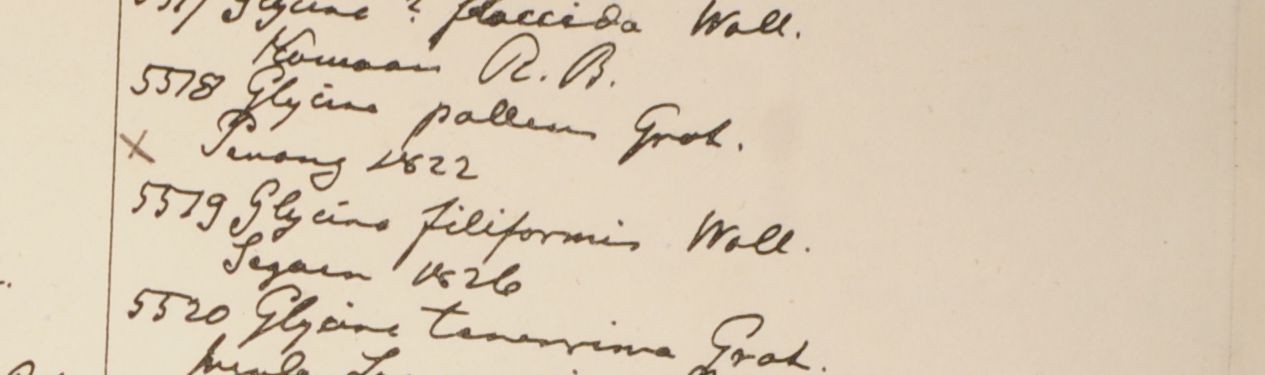 5517 Glycine ? flaccida Wall.
Kamaon R. B.
5518 Glycine pallens Grah.
X Penang 1822
5519 Glycine filiformis Wall.
Segaen 1826
5520 Glycine tenerrima Grah.